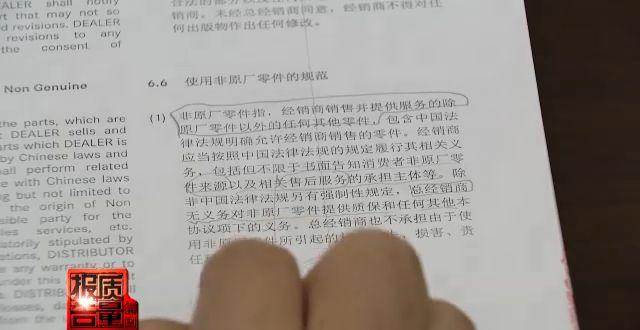 EALER shall notify
that may not so
d revisions. DEALER
revisions to any
the consent of
Non Genuine
the parts, which are
DEALER sells and
arts which DEALER is
by Chinese laws and
shall perform related
e with Chinese laws
ng but not limited to
the origin of Non
sible party for the
les services, etc.
atorily stipulated by
ations, DISTRIBUTOR
any warranty or to
under this
DISTRIB
销商。未经总经销商同意，经销商不得对任
何出版物作出任何修改。
6.6 使用非原厂零件的规范
(1) 非原厂零件指，经销商销售并提供服务的除
原厂零件以外的任何其他零件，包含中国法
律法规明确允许经销商销售的零件。经销商
应当按照中国法律法规的规定履行其相关义
务，包括但不限于书面告知消费者非原厂零
件来源以及相关售后服务的承担主体等。除
非中国法律法规另有强制性规定，总经销商
无义务对非原厂零件提供质保和任何其他本
协议项下的义务。总经销商也不承担由于使
用非原 件所引起的 损害、责
任
质量报告